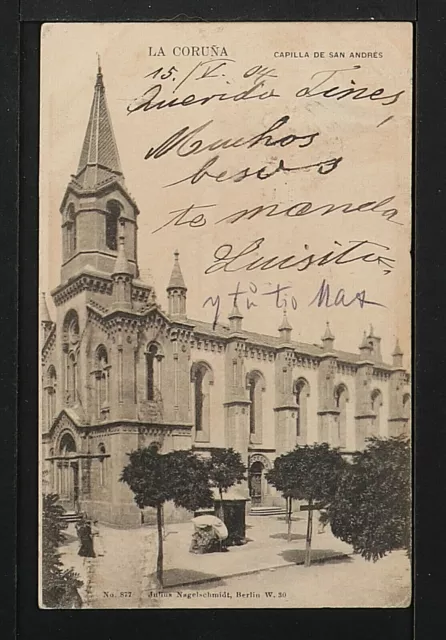 LA CORUÑA CAPILLA DE SAN ANDRÉS
15./V. 04
Querido Tines,
Muchos
besos
te manda
Luisito,
y tu tio Max
No. 877 Julius Nagelschmidt, Berlin W. 30